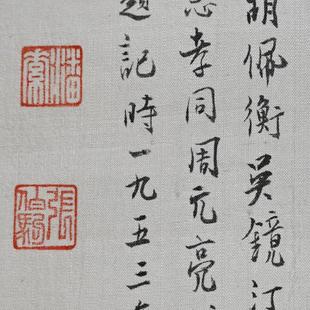 胡佩衡吳鏡汀
孝同周元亮
題記時一九五三年